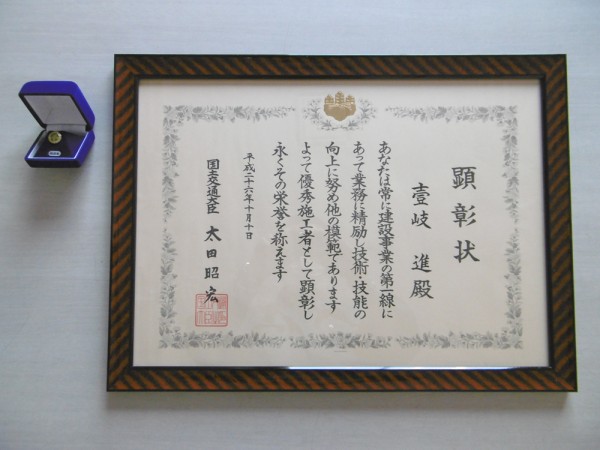 顕彰状
壹岐 進殿
あなたは常に建設事業の第一線に
あって業務に精励し技術・技能の
向上に努め他の模範であります
よって優秀施工者として顕彰し
永くその栄誉を称えます
平成二十六年十月十日
国土交通大臣 太田昭宏